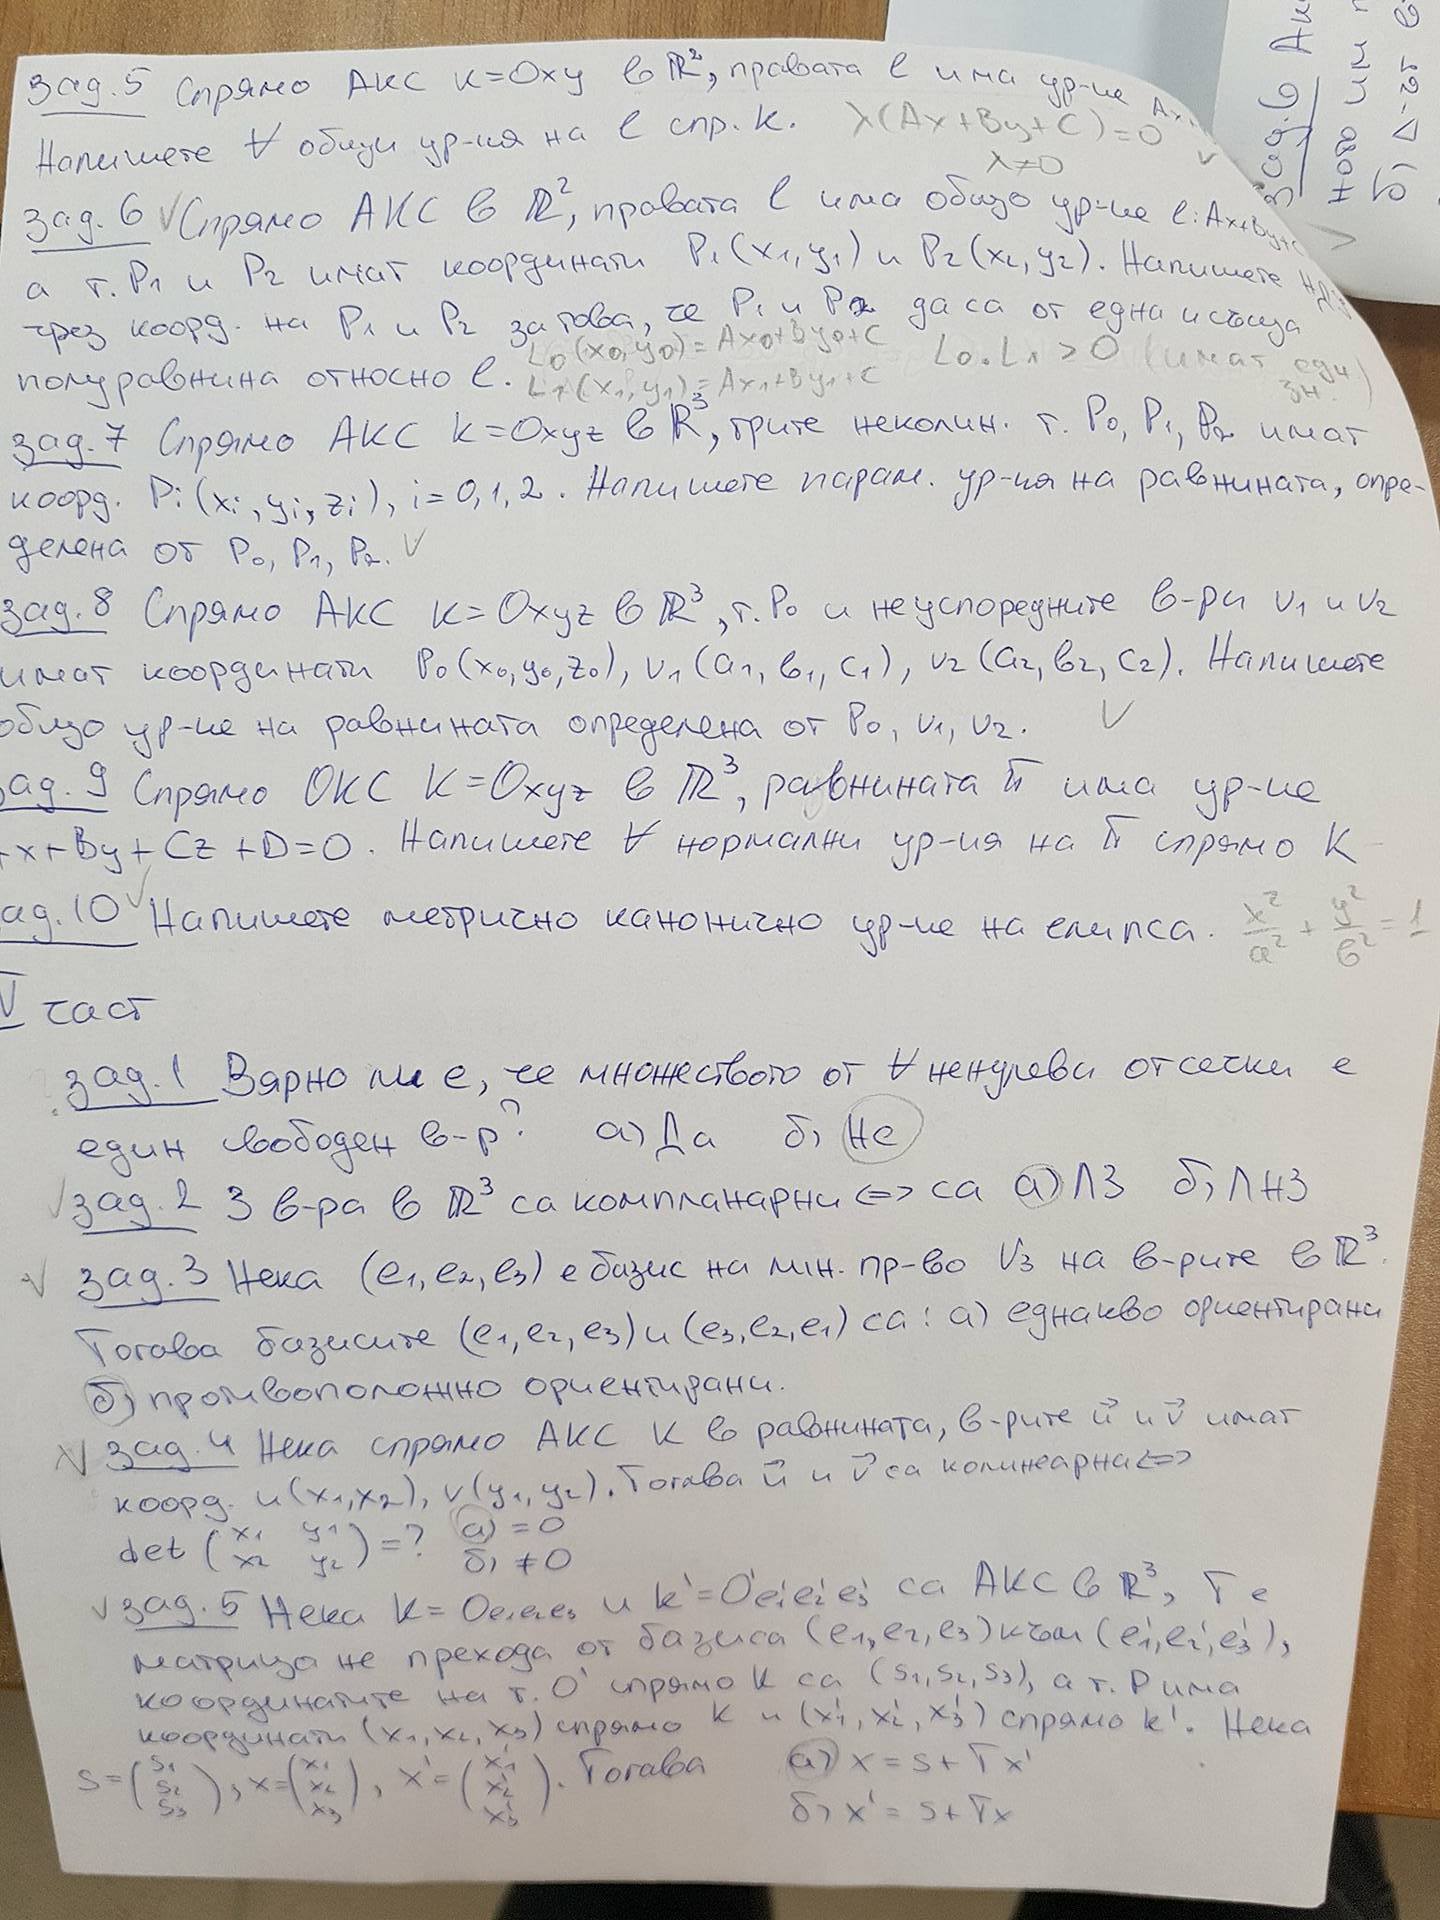 зад.5 Спрямо АКС K=Oxy в ℝ², правата l има ур-ие Ax+
Напишете ∀ общи ур-ия на l спр. K. λ(Ax+By+C)=0
λ≠0 ✓
зад.6 ✓ Спрямо АКС в ℝ², правата l има общо ур-ие l: Ax+By+C
а т. P1 и P2 имат координати P1(x1,y1) и P2(x2,y2). Напишете НДУ
чрез коорд. на P1 и P2 за това, че P1 и P2 да са от една и съща
L0(x0,y0)=Ax0+By0+C L0.L1>0 (имат едн
полуравнина относно l. L1(x1,y1)=Ax1+By1+C зн.)
зад.7 Спрямо АКС K=Oxyz в ℝ³, трите неколин. т. P0, P1, P2 имат
коорд. Pi(xi,yi,zi), i=0,1,2. Напишете парам. ур-ия на равнината, опре-
делена от P0, P1, P2. ✓
зад.8 Спрямо АКС K=Oxyz в ℝ³, т. P0 и неуспоредните в-ри v1 и v2
имат координати P0(x0,y0,z0), v1(a1,b1,c1), v2(a2,b2,c2). Напишете
общо ур-ие на равнината определена от P0, v1, v2. ✓
зад.9 Спрямо ОКС K=Oxyz в ℝ³, равнината π има ур-ие
x+By+Cz+D=0. Напишете ∀ нормални ур-ия на π спрямо K
ад.10 ✓ Напишете метрично канонично ур-ие на елипса. x²/a² + y²/b² = 1
V част
зад.1 Вярно ли е, че множеството от ∀ ненулеви отсечки е
един свободен в-р? а) Да б) Не
✓ зад.2 3 в-ра в ℝ³ са компланарни ⇔ са а) ЛЗ б) ЛНЗ
✓ зад.3 Нека (e1,e2,e3) е базис на лин. пр-во V3 на в-рите в ℝ³.
Тогава базисите (e1,e2,e3) и (e3,e2,e1) са: а) еднакво ориентирани
б) противоположно ориентирани.
✓ зад.4 Нека спрямо АКС K в равнината, в-рите u⃗ и v⃗ имат
коорд. u(x1,x2), v(y1,y2). Тогава u⃗ и v⃗ са колинеарна ⇔
det (x1 y1
x2 y2) = ? а) = 0
б) ≠ 0
✓ зад.5 Нека K=Oe1e2e3 и K'=O'e1'e2'e3' са АКС в ℝ³, T е
матрица не прехода от базиса (e1,e2,e3) към (e1',e2',e3'),
координатите на т. O' спрямо K са (s1,s2,s3), а т. P има
координати (x1,x2,x3) спрямо K и (x1',x2',x3') спрямо K'. Нека
s=(s1 s2 s3), x=(x1 x2 x3), x'=(x1' x2' x3'). Тогава а) x=s+Tx'
б) x'=s+Tx